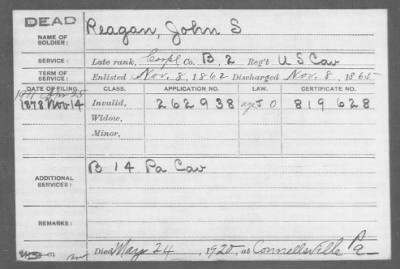 DEAD
NAME OF SOLDIER: Reagan, John S
SERVICE: Late rank, Corpl Co. B, 2 Reg't U S Cav
TERM OF SERVICE: Enlisted Nov. 8, 1862 Discharged Nov. 8, 1865
DATE OF FILING. CLASS. APPLICATION NO. LAW. CERTIFICATE NO.
1878 Nov 14 Invalid, 262938 819628
Widow,
Minor,
ADDITIONAL SERVICES: B 14 Pa Cav
REMARKS:
Died May 24, 1920, at Connellsville Pa